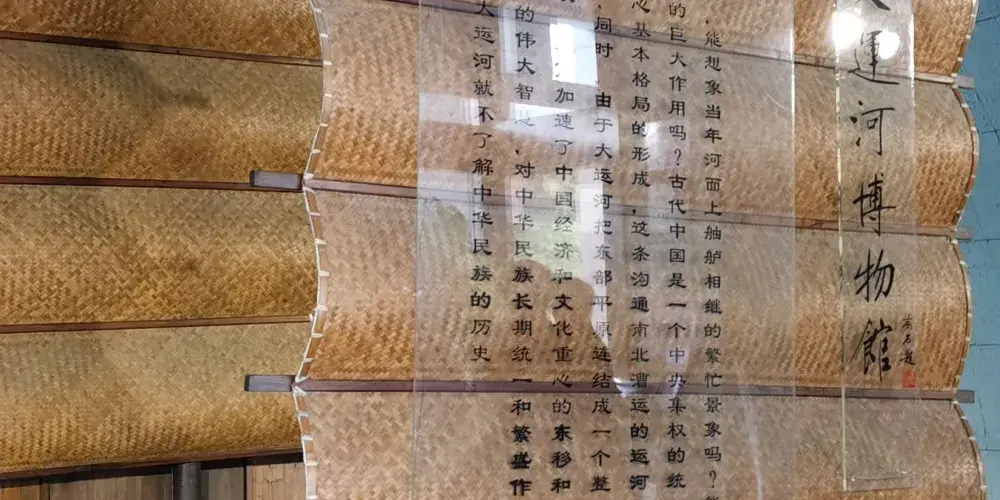 運河博物館
南石題
能想象当年河面上舳舻相继的繁忙景象吗？
的巨大作用吗？古代中国是一个中央集权的统
基本格局的形成，这条沟通南北漕运的运河
同时，由于大运河把东部平原连结成一个整
加速了中国经济和文化重心的东移和
的伟大智 、对中华民族长期统一和繁盛作
大运河就不了解中华民族的历史